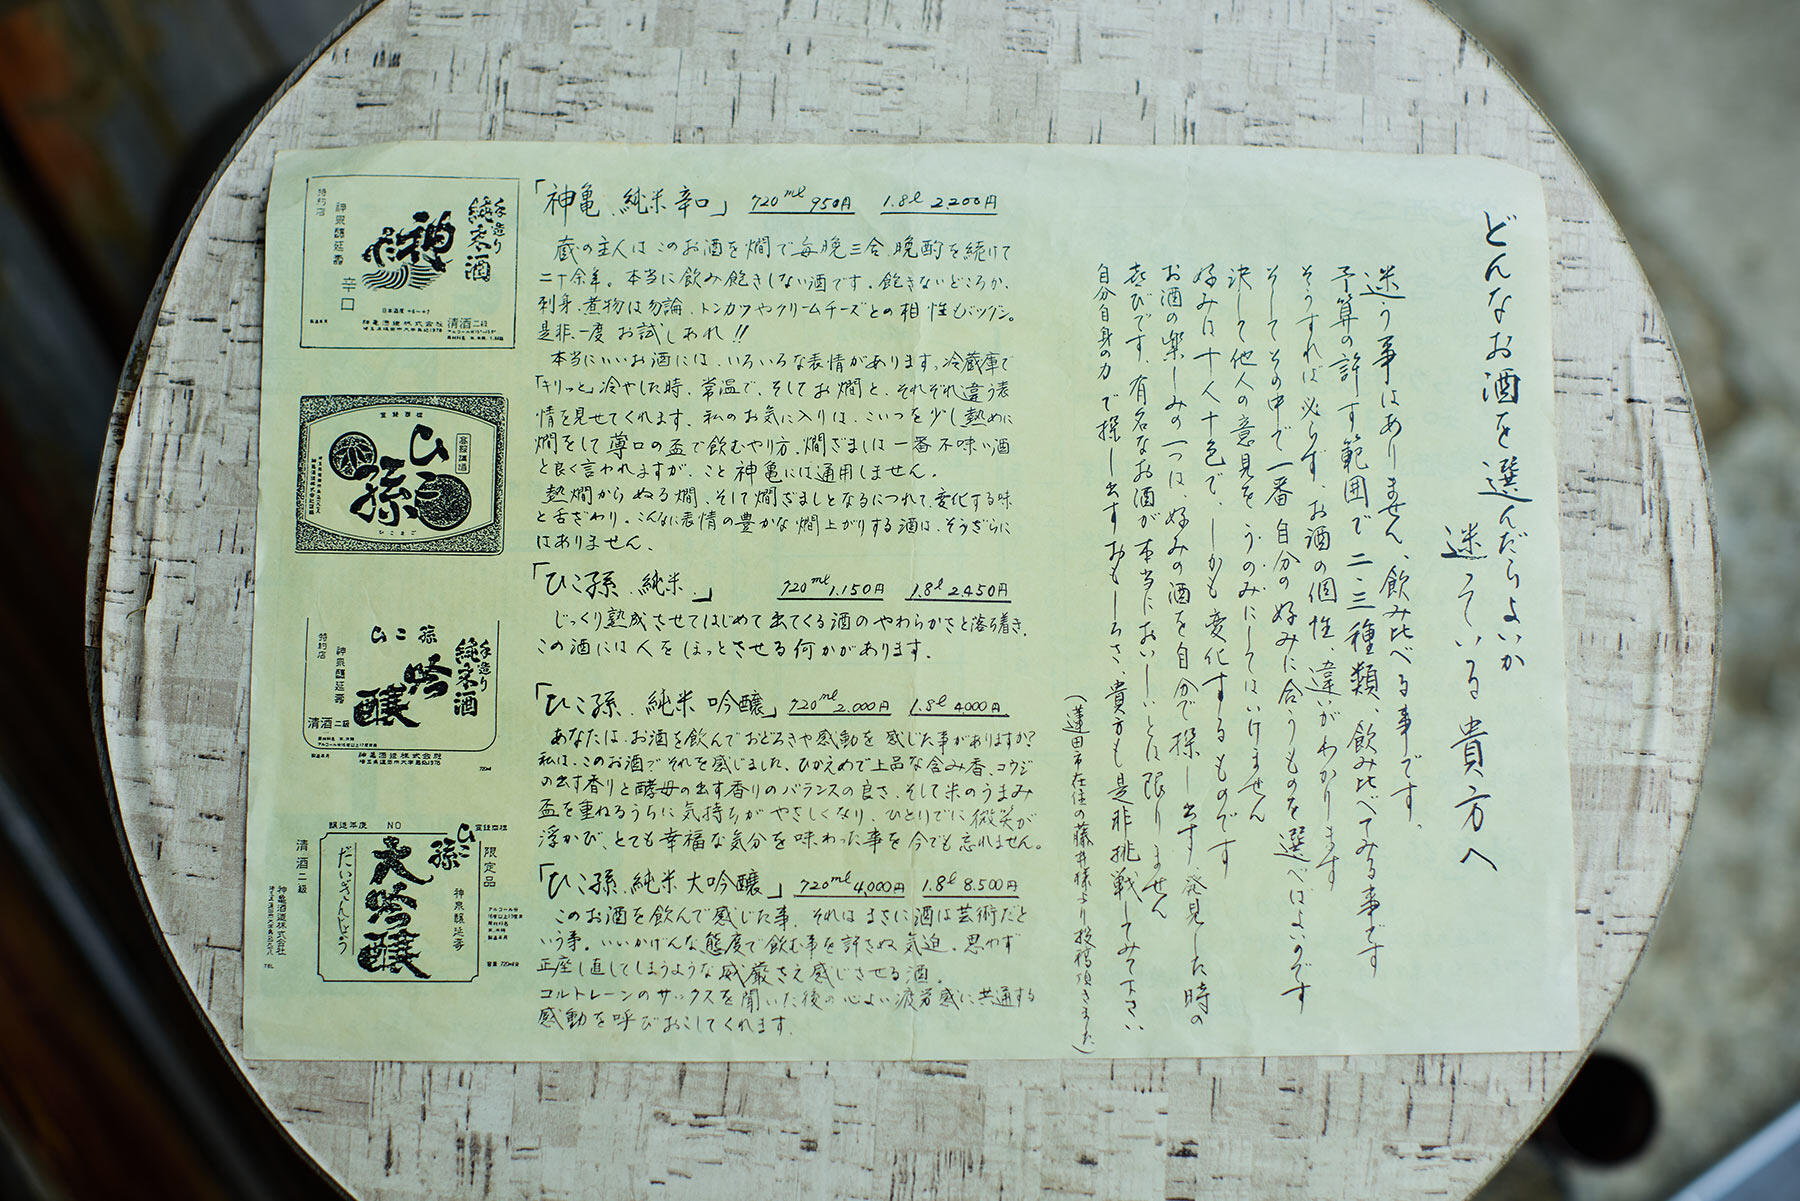 どんなお酒を選んだらよいか
迷っている貴方へ
迷う事はありません、飲み比べる事です。
予算の許す範囲で二・三種類、飲み比べてみる事です
そうすれば必らず、お酒の個性、違いがわかります
そしてその中で一番自分の好みに合うものを選べばよいのです
決して他人の意見をうのみにしてはいけません
好みは十人十色で、しかも変化するものです
お酒の楽しみの一つは、好みの酒を自分で探し出す、発見した時の
喜びです、有名なお酒が本当においしいとは限りません
自分自身の力で探し出すおもしろさ、貴方も是非挑戦してみて下さい
(蓮田市在住の藤井様より投稿頂きました)
「神亀 純米辛口」 720ml 950円 1.8l 2,200円
蔵の主人はこのお酒を燗で毎晩三合、晩酌を続けて
二十余年。本当に飲み飽きしない酒です。飽きないどころか、
刺身、煮物は勿論、トンカツやクリームチーズとの相性もバツグン。
是非、一度お試しあれ!!
本当にいいお酒には、いろいろな表情があります。冷蔵庫で
「キリッと」冷やした時、常温で、そしてお燗と、それぞれ違う表
情を見せてくれます。私のお気に入りは、こいつを少し熱めに
燗をして蓴口の盃で飲むやり方。燗ざましは一番不味い酒
と良く言われますが、こと神亀には通用しません。
熱燗からぬる燗、そして燗ざましとなるにつれて、変化する味
と舌ざわり。こんなに表情の豊かな燗上がりする酒は、そうざらに
はありません。
「ひこ孫 純米」 720ml 1,150円 1.8l 2,450円
じっくり熟成させてはじめて出てくる酒のやわらかさと落ち着き、
この酒には人をほっとさせる何かがあります。
「ひこ孫 純米 吟醸」 720ml 2,000円 1.8l 4,000円
あなたは、お酒を飲んでおどろきや感動を感じた事がありますか?
私は、このお酒でそれを感じました。ひかえめで上品な含み香、コウジ
の出す香りと酵母の出す香りのバランスの良さ、そして米のうまみ
盃を重ねるうちに気持ちがやさしくなり、ひとりでに微笑が
浮かび、とても幸福な気分を味わった事を今でも忘れません。
「ひこ孫 純米 大吟醸」 720ml 4,000円 1.8l 8,500円
このお酒を飲んで感じた事、それはまさに酒は芸術だと
いう事。いいかげんな態度で飲む事を許さぬ気迫。思わず
正座し直してしまうような威厳さえ感じさせる酒。
コルトレーンのサックスを聞いた後の心よい疲労感に共通する
感動を呼びおこしてくれます。
手造り
純米酒
神亀
辛口
特約店
日本酒度 +6~+7
神亀酒造株式会社
清酒二級
ひこ孫
ひこまご
手造り
純米酒
ひこ孫
吟醸
特約店
清酒二級
神亀酒造株式会社
720ml
醸造年度 NO
登録商標
ひこ孫
大吟醸
だいぎんじょう
限定品
清酒二級
神亀酒造株式会社
TEL
容量 720ml詰